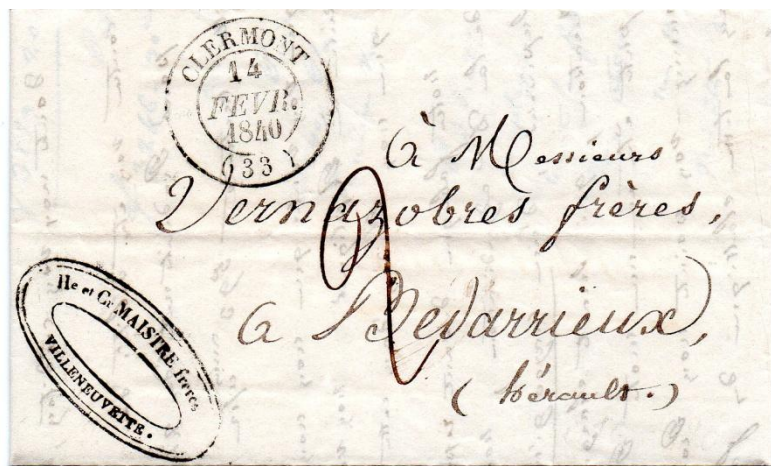 CLERMONT
14
FEVR.
1840
(33)
à Messieurs
Vernazobres frères,
2
à Bédarrieux,
(hérault.)
Hte et Ci MAISTRE frères
VILLENEUVETTE.